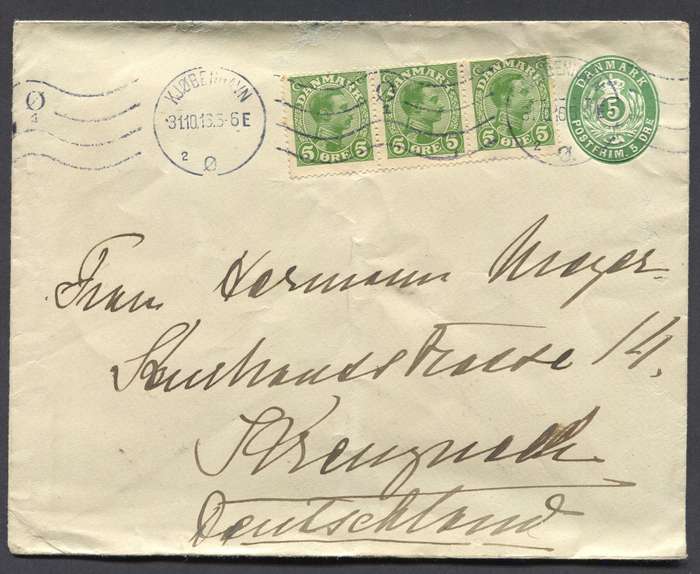 Ø
1
KJØBENHAVN
31.10.13.5-6E
2 Ø
DANMARK
5 ØRE 5
DANMARK
5 ØRE 5
DANMARK
5 ØRE 5
2 Ø
DANMARK
5
POSTFRIM. 5 ØRE
Frau Hermann Mayer
14.
Kreuznach
Deutschland